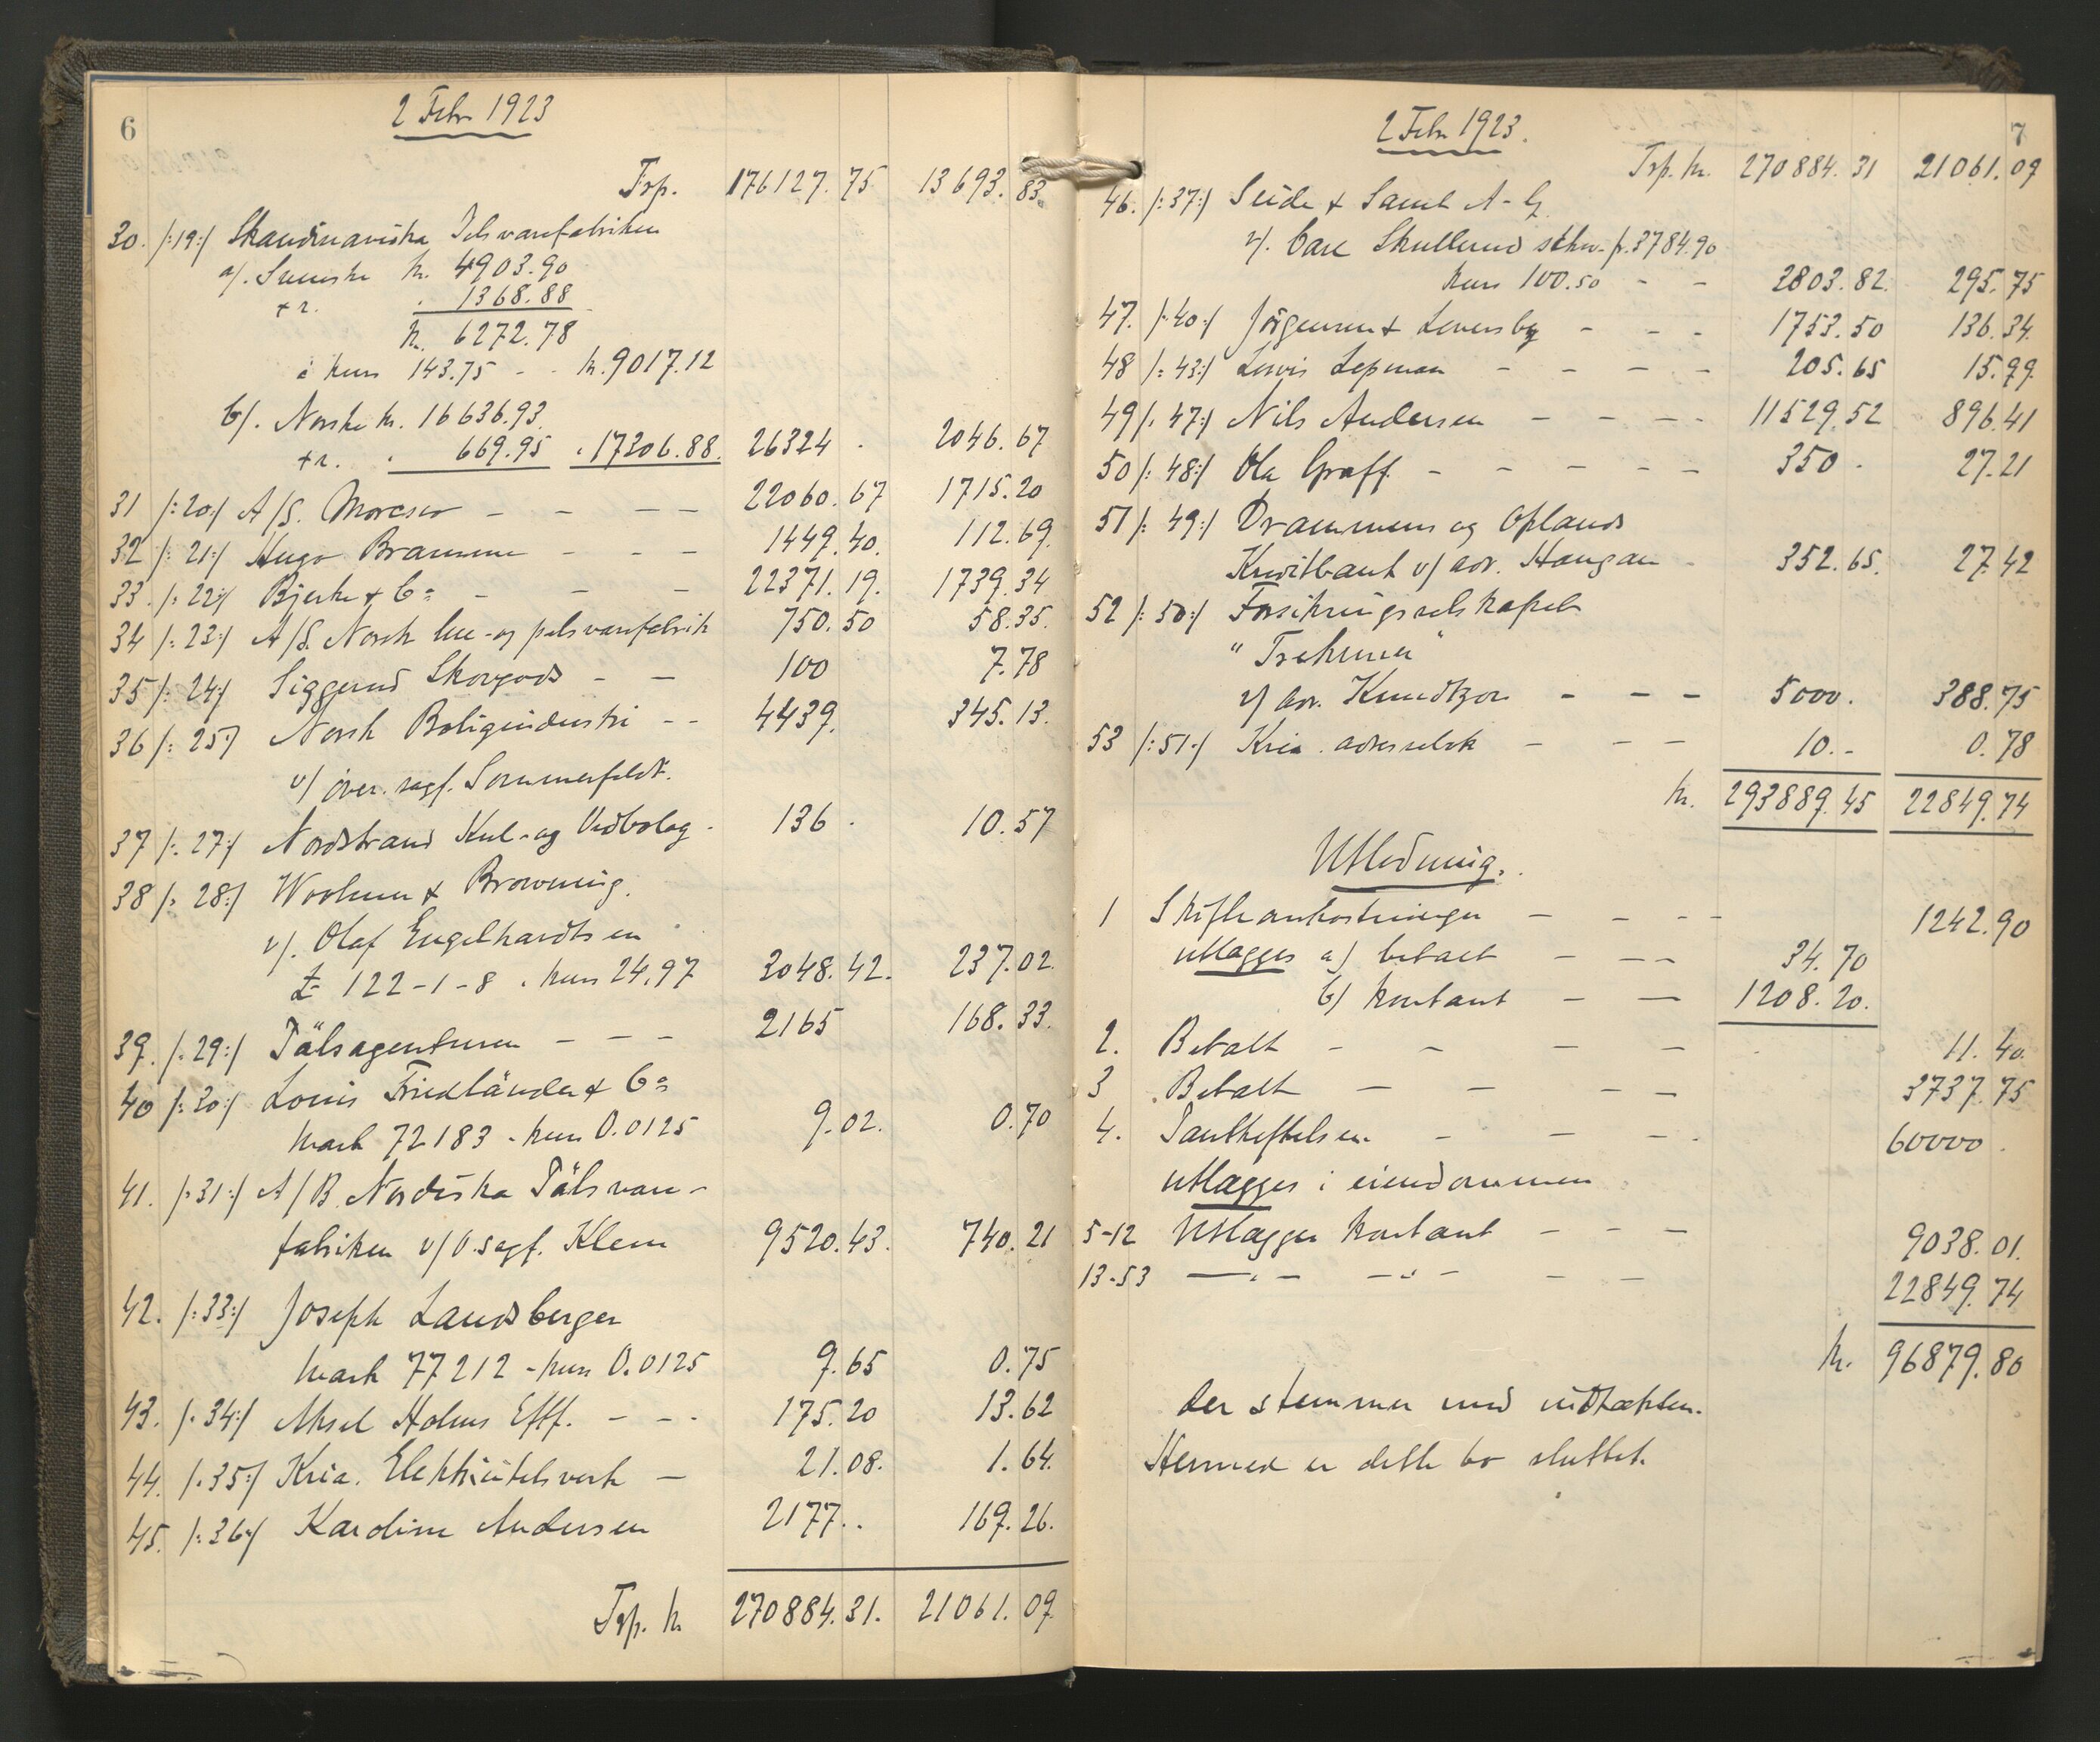 6
2 Febr 1923
Trp. 176127.75 13693.83
30. /:19:/ Skandinaviska Pelsvarefabriken
a/. Svenske kr. 4903.90
+ r. . 1368.88
kr. 6272.78
à kurs 143.75 - - kr. 9017.12
b/. Norske kr. 16636.93
+ r. . 669.95 . 17306.88. 26324 . 2046.67
31 /:20:/ A/S. Morcsco - - - - 22060.67 1715.20
32 /:21:/ Hugo Bramme - - - 1449.40. 112.69
33. /:22:/ Bjerke & Co - - - 22371.19. 1739.34
34 /:23:/ A/S. Norsk lue- og pelsvarefabrik 750.50 58.35.
35 /:24:/ Siggerud Skovgods - - 100 7.78
36 /:25:/ Norsk Boligindustri - - 4439. 345.13.
v/ over.sagf. Sommerfeldt.
37 /:27:/ Nordstrand Kul- og Vedbolag - 136 . 10.57
38 /:28:/ Woolmer & Browning.
v/. Olaf Engelhardtsen
£ 122-1-8 . kurs 24.97 3048.42. 237.02.
39. /:29:/ Pälsagenturen - - - 2165 168.33.
40 /:30:/ Louis Friedländer & Co
Mark 72183 - kurs 0.0125 9.02. 0.70
41. /:31:/ A/B. Nordiska Pälsvaru-
fabriken v/O.sagf. Klem 9520.43. 740.21
42. /:33:/ Joseph Landsberger
Mark 77212 - kurs 0.0125 9.65 0.75
43. /:34:/ Aksel Holms Eftf. - - - 175.20 13.62
44. /:35:/ Kria. Elektricitetsverk - 21.08. 1.64.
45. /:36:/ Karoline Andersen 2177.. 169.26.
Trp. kr 270884.31. 21061.09
7
2 Febr 1923.
Trp. kr. 270884.31 21061.09
46. /:37:/ Seide & Samt A-G.
v/. Carl Skullerud schw. fr. 3784.90
kurs 100.50 - - 3803.82. 295.75
47. /:40:/ Jörgensen & Levensby - - - 1753.50 136.34.
48 /:43:/ Lewis Lepman - - - - 205.65 15.99.
49 /:47:/ Nils Andersen - - - - 11529.52 896.41
50 /:48:/ Ola Graff. - - - - - 350 - 27.21
51 /:49:/ Drammens og Oplands
Kreditbank v/ adv. Haugan - 352.65. 27.42
52 /:50:/ Forsikringsselskapet
" Trekroner "
v/ adv. Knudtzon - - - 5000. 388.75
53 /:51:/ Kria. adresselsk - - - 10.- 0.78
kr. 293889.45 22849.74
Utlodning.
1 Skifteomkostninger - - - - 1242.90
utlægges a) betalt - - - 34.70
b) kontant - - 1208.20.
2. Betalt - - - - 11.40.
3 Betalt - - - - 3737.75
4. Pantheftelsen - - - - 60000 .
utlægges i eiendommen
5-12 Utlægges kontant - - - 9038.01.
13-53 -"- -"- - - 22849.74
kr. 96879.80
der stemmer med indtækten.
Hermed er dette bo sluttet.